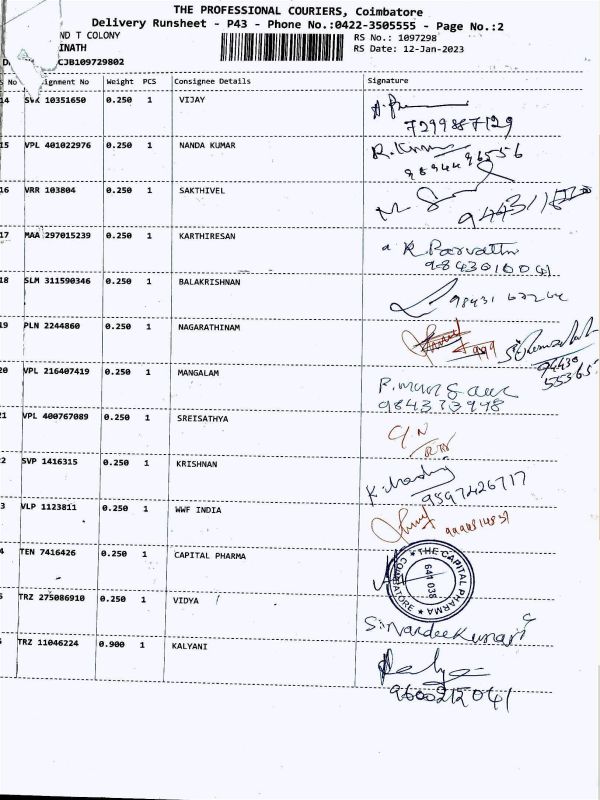 THE PROFESSIONAL COURIERS, Coimbatore
Delivery Runsheet - P43 - Phone No.:0422-3505555 - Page No.:2
ND T COLONY RS No.: 1097298
INATH RS Date: 12-Jan-2023
CJB109729802
No ignment No Weight PCS Consignee Details Signature
14 10351650 0.250 1 VIJAY
7299887129
15 VPL 401022976 0.250 1 NANDA KUMAR R.Kumar
9894496556
16 VRR 103804 0.250 1 SAKTHIVEL
17 MAA 297015239 0.250 1 KARTHIRESAN R Parvathi
9843010041
18 SLM 311590346 0.250 1 BALAKRISHNAN
98431
19 PLN 2244860 0.250 1 NAGARATHINAM
94430
55365
20 VPL 216407419 0.250 1 MANGALAM
9843773948
1 VPL 400767089 0.250 1 SREISATHYA
2 SVP 1416315 0.250 1 KRISHNAN
9597426717
3 VLP 1123811 0.250 1 WWF INDIA
4 TEN 7416426 0.250 1 CAPITAL PHARMA
★ THE CAPITAL PHARMA ★ COIMBATORE
641 038
TRZ 275086910 0.250 1 VIDYA
TRZ 11046224 0.900 1 KALYANI
9600212041